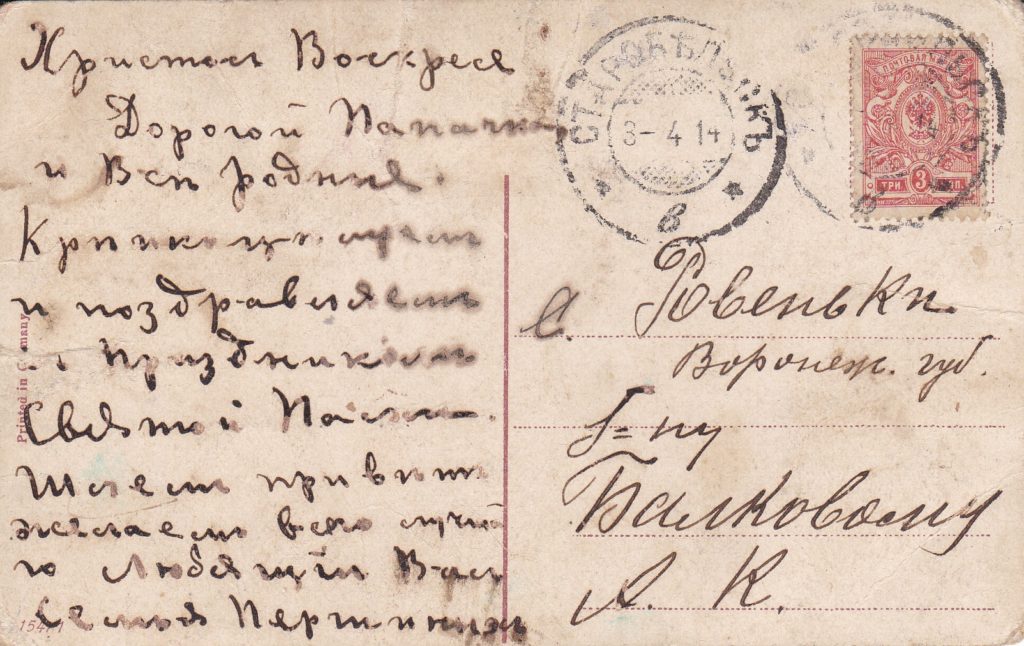 Христосъ Воскресе
Дорогой Папачка
и Всѣ родные.
Крѣпко цѣлуем
и поздравляем
с Праздником
Святой Пасхи.
Шлем привѣт
желаем всего лучша
го Любящiй Васъ
Семья
Printed in Germany
СТАРОБѢЛЬСКЪ
3-4 14
в
ПОЧТОВАЯ МАРКА
ТРИ 3 КОП.
С. Ровеньки
Воронеж. губ.
Г=ну
Балковому
А. К.